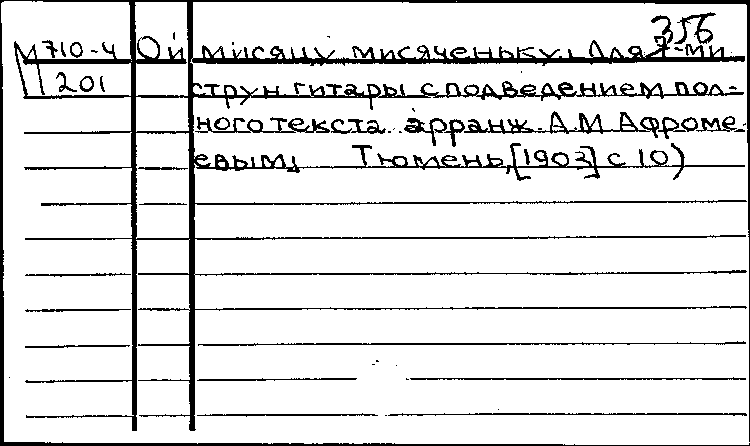 356
М 710-4 Ой мисяцу, мисяченьку. Для 7-ми
201 струн гитары с подведением пол-
ного текста арранж. А.М Афроме-
евым, Тюмень, [1903] с 10)